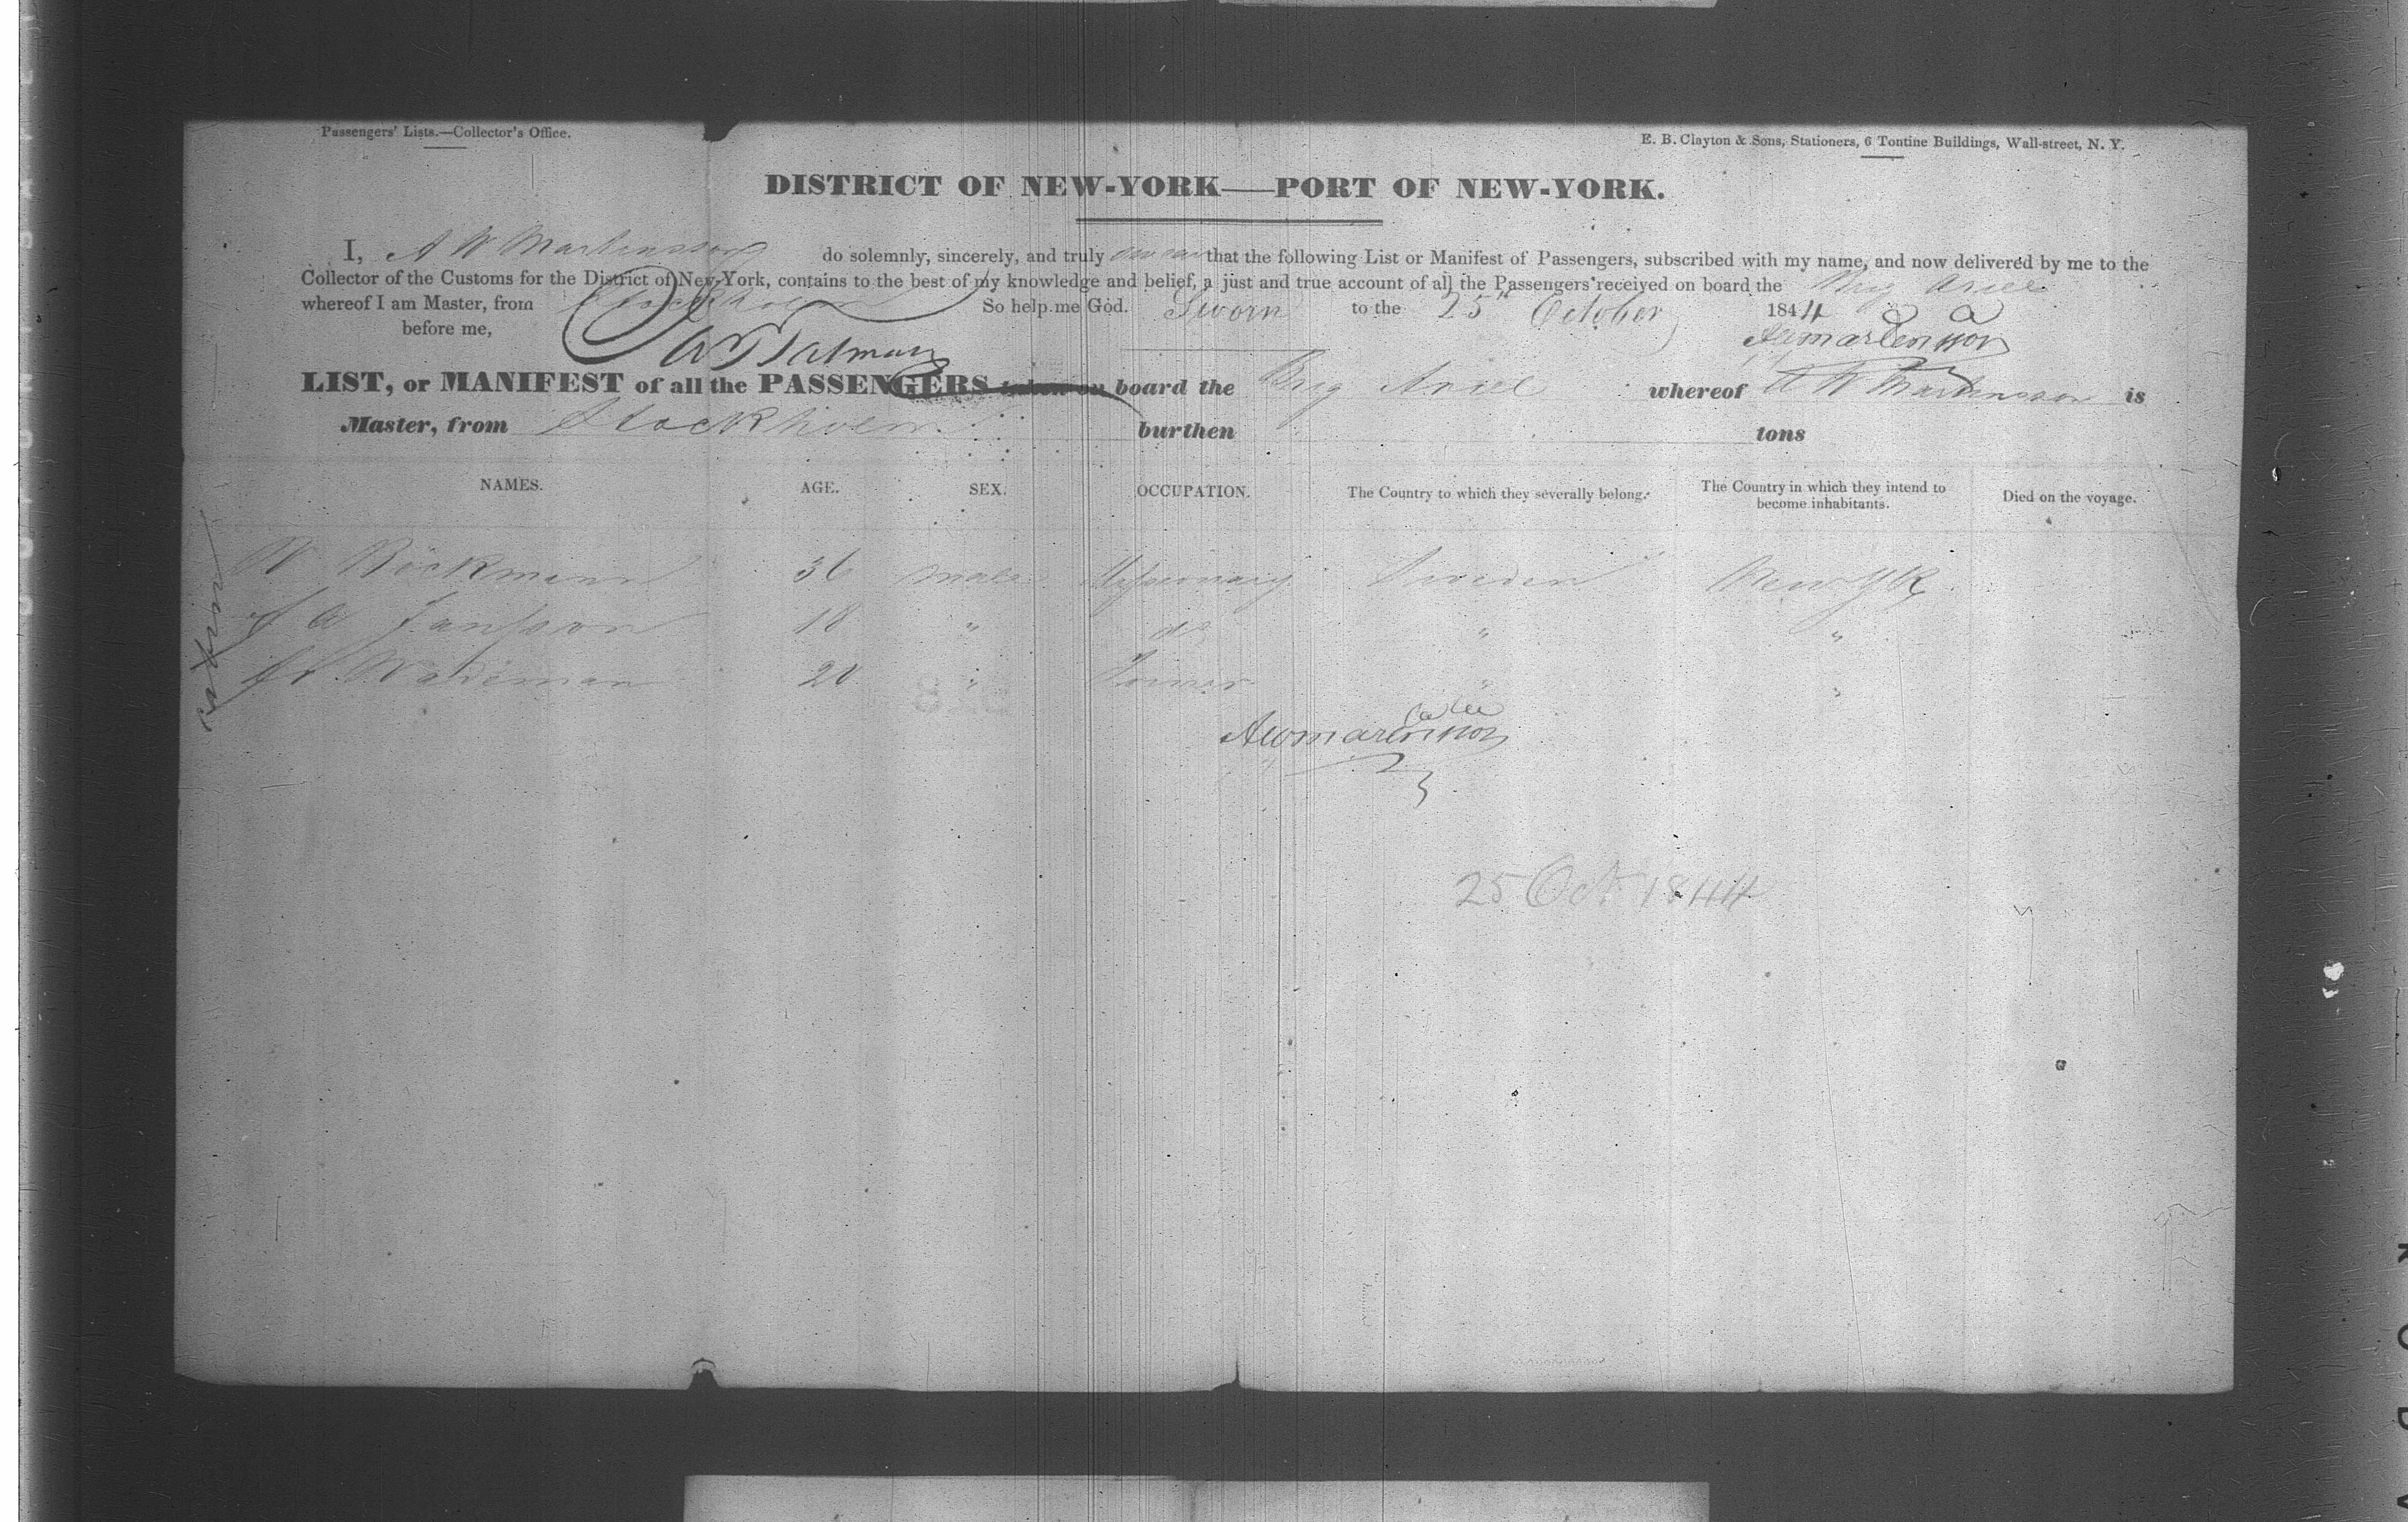 Passengers' Lists.—Collector's Office.
E. B. Clayton & Sons, Stationers, 6 Tontine Buildings, Wall-street, N. Y.
DISTRICT OF NEW-YORK—PORT OF NEW-YORK.
I, A W Martensson do solemnly, sincerely, and truly swear that the following List or Manifest of Passengers, subscribed with my name, and now delivered by me to the
Collector of the Customs for the District of New-York, contains to the best of my knowledge and belief, a just and true account of all the Passengers received on board the Brig Ariel
whereof I am Master, from Stockholm So help me God. Sworn to the 25th October 1844
before me, AWMartensson
LIST, or MANIFEST of all the PASSENGERS taken on board the Brig Ariel whereof A W Martensson is
Master, from Stockholm burthen tons
NAMES. AGE. SEX. OCCUPATION. The Country to which they severally belong. The Country in which they intend to become inhabitants. Died on the voyage.
W Böckmann 36 male Missionary Sweden New York
A Jansson 18 " do " "
Wademan 20 " " "
AWMartensson
25 Oct 1844